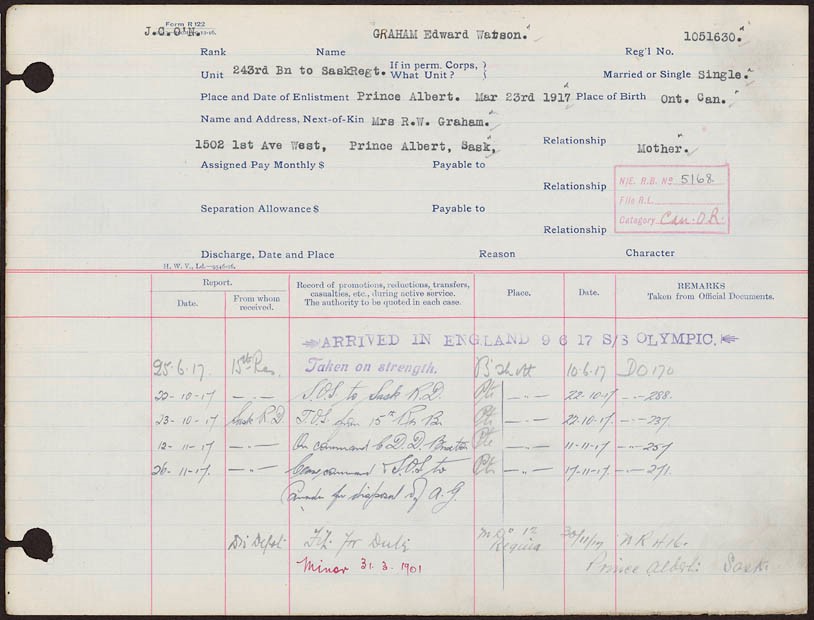 Form R 122
J.C.O'N. GRAHAM Edward Watson. 1051630.
Rank Name Reg'l No.
Unit 243rd Bn to SaskRegt. If in perm. Corps, What Unit? Married or Single Single.
Place and Date of Enlistment Prince Albert. Mar 23rd 1917 Place of Birth Ont. Can.
Name and Address, Next-of-Kin Mrs R.W. Graham.
1502 1st Ave West, Prince Albert, Sask, Relationship Mother.
Assigned Pay Monthly $ Payable to
Relationship
N/E. R.B. No 5168
File R.L.
Category Can. O.R.
Separation Allowance $ Payable to
Relationship
Discharge, Date and Place Reason Character
H. W. V., Ld.
Report. Record of promotions, reductions, transfers, casualties, etc., during active service. The authority to be quoted in each case. Place. Date. REMARKS Taken from Official Documents.
Date. From whom received.
ARRIVED IN ENGLAND 9 6 17 S/S OLYMPIC.
25-6-17 15th Res Taken on strength. B'shott 10-6-17 DO 170
20-10-17 — " — S.O.S. to Sask R.D. — " — 22-10-17 — " — 288.
23-10-17 Sask R.D. T.O.S. from 15th Res Bn — " — 22-10-17. — " — 237.
12-11-17 — " — On command C.D.D. Buxton — " — 11-11-17 — " — 257
26-11-17. — " — command & S.O.S. to — " — 17-11-17. — " — 271.
Canada for disposal of A.G
Dis Depot Fit for Duty M.D. 12 Regina 30/11/17
Minor 31.3.1901 Prince Albert Sask